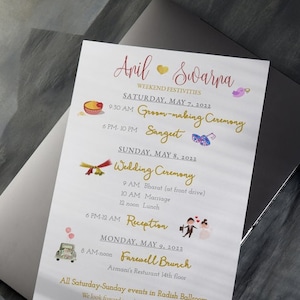 Anil Swarna
WEEKEND FESTIVITIES
SATURDAY, MAY 7, 2022
9:30 AM Groom-making Ceremony
6 PM-10 PM Sangeet
SUNDAY, MAY 8, 2022
Wedding Ceremony
9 AM Bharat (at front drive)
10 AM Marriage
12 noon Lunch
6 PM-12 AM Reception
MONDAY, MAY 9, 2022
8 AM-noon Farewell Brunch
Armani's Restaurant 14th floor
All Saturday-Sunday events in Radish
We look